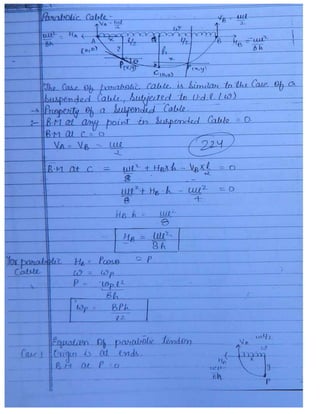 Parabolic Cable -
VA = wl/2
w
VB = wl/2
wl²/8h = HA
A
B
HB = wl²/8h
(0,0)
l/2
l/2
h
P(x,y)
C(0,0)
(x,y)
The Case of parabolic cable is Similar to the Case of a
Suspended Cable, Subjected to U.d.l (w)
→ Property of a Suspended Cable
:- B.M at any point in Suspended Cable = 0
B.M at C = 0
VA = VB = wl/2
224
B.M at C = wl²/8 + HB×h - VB×l/2 = 0
wl²/8 + HB h - wl²/4 = 0
HB h = wl²/8
HB = wl²/8h
For parabolic
Cable
HA = Pcosθ = P
w = wp
P = wp l²/8h
wp = 8Ph/l²
Equation Of parabolic tendon
Case 1 Origin is at ends.
B.M at P = 0
VA
w
HA
wl²/8h
y
P